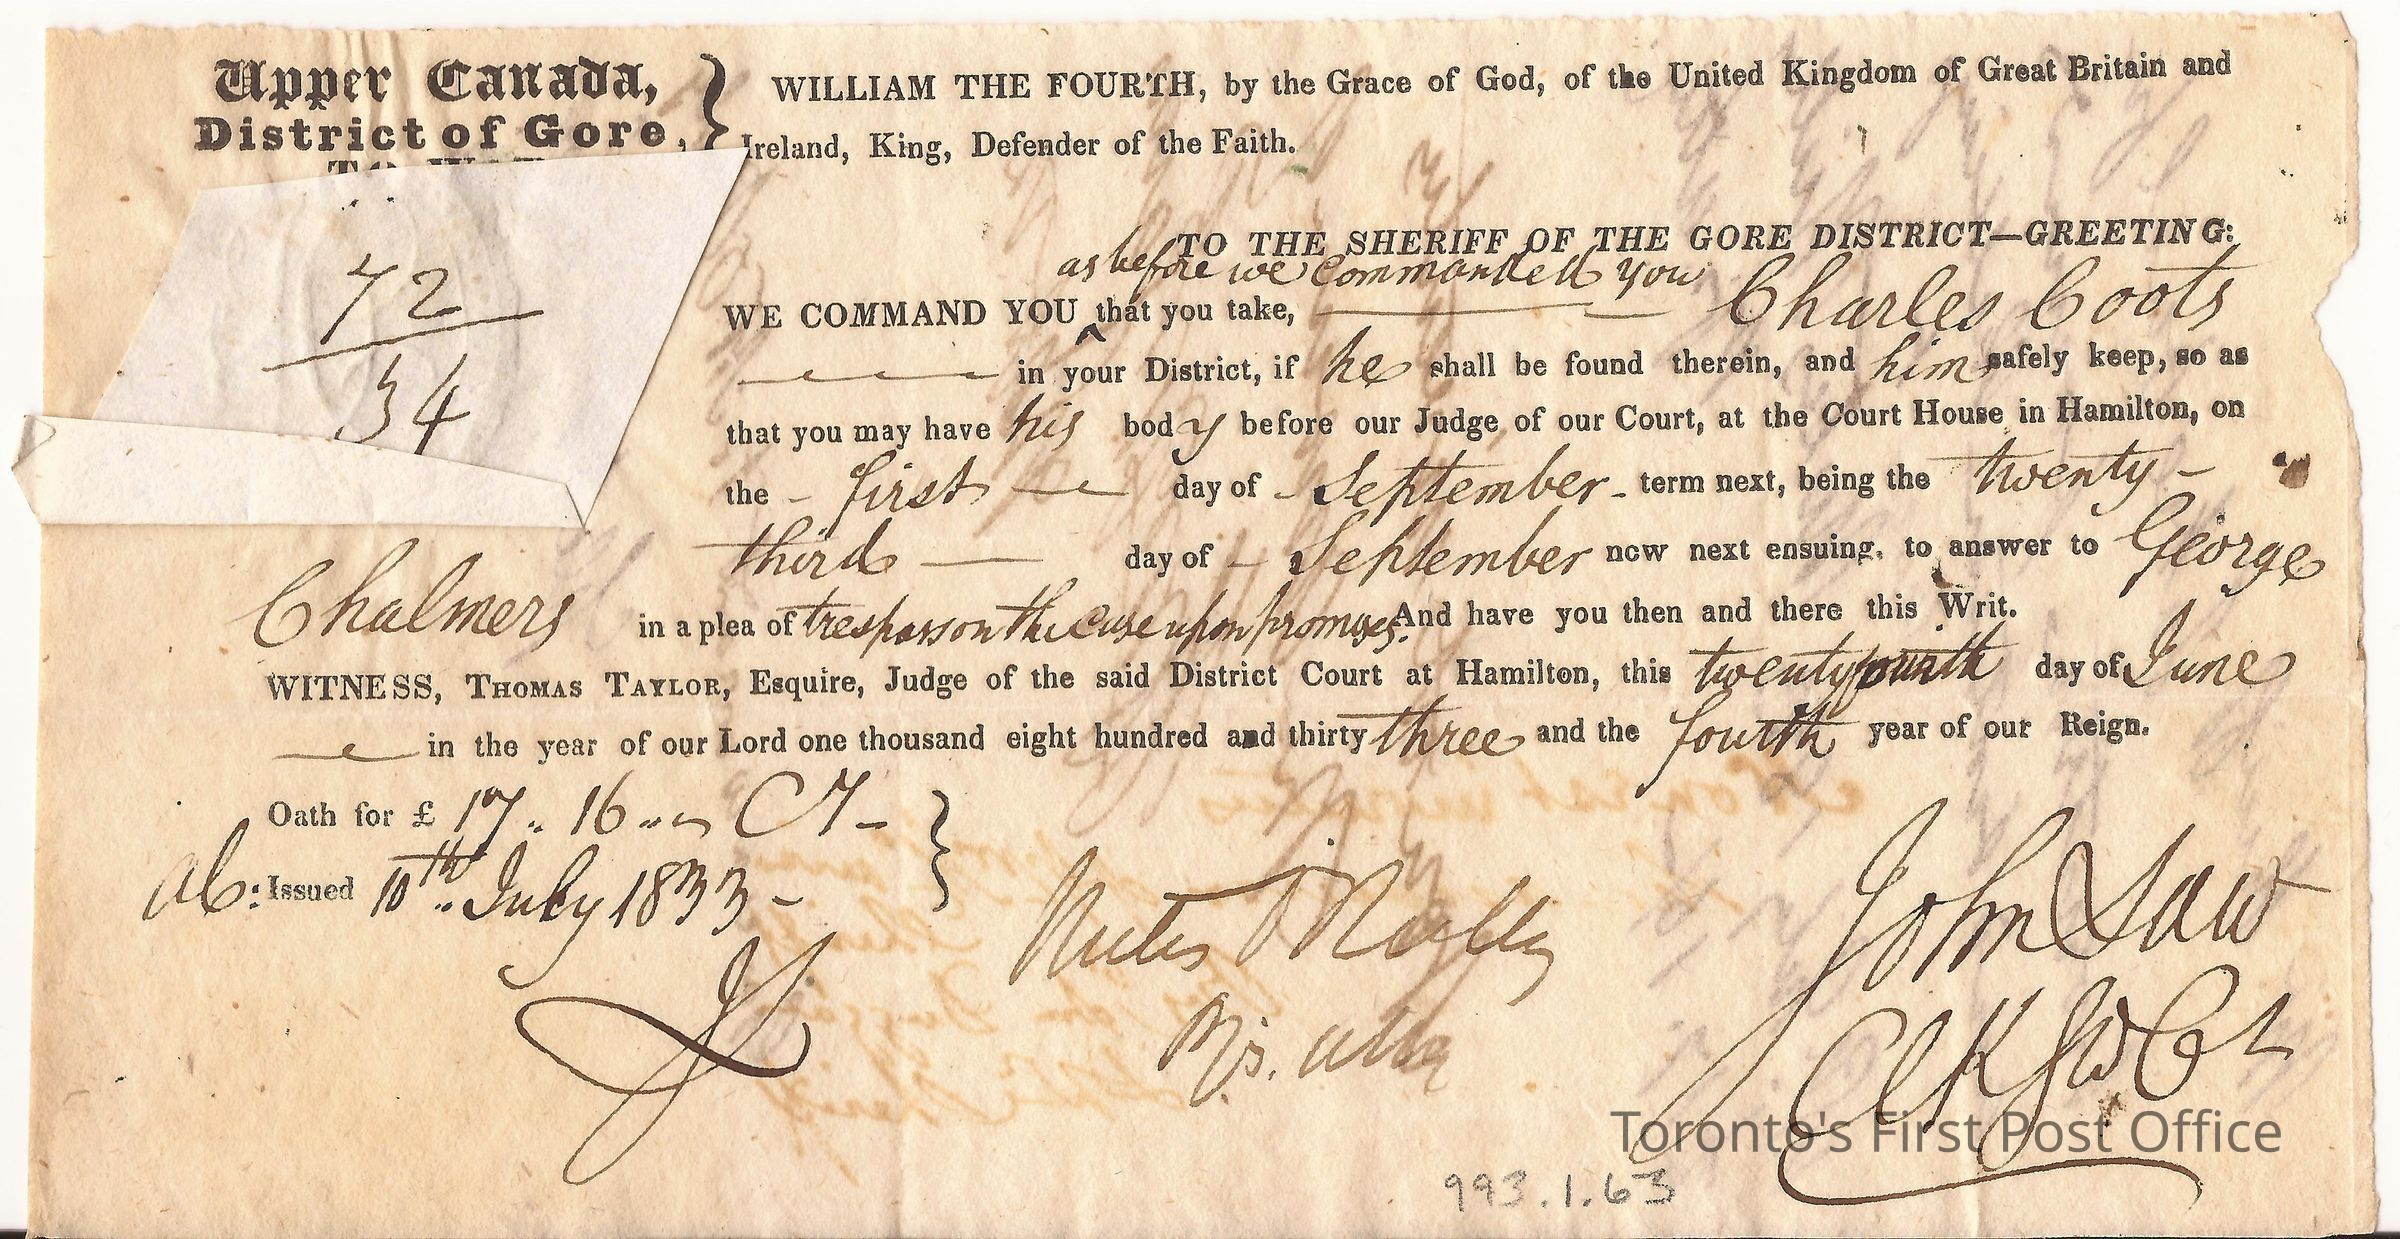 Upper Canada,
District of Gore,
WILLIAM THE FOURTH, by the Grace of God, of the United Kingdom of Great Britain and
Ireland, King, Defender of the Faith.
72
34
TO THE SHERIFF OF THE GORE DISTRICT—GREETING:
as before we commanded you
WE COMMAND YOU ‸ that you take, Charles Coots
in your District, if he shall be found therein, and him safely keep, so as
that you may have his body before our Judge of our Court, at the Court House in Hamilton, on
the - first — day of - September - term next, being the twenty -
third — day of - September now next ensuing. to answer to George
Chalmers in a plea of trespass on the case upon promises. And have you then and there this Writ.
WITNESS, THOMAS TAYLOR, Esquire, Judge of the said District Court at Hamilton, this twenty fourth day of June
in the year of our Lord one thousand eight hundred and thirty three and the fourth year of our Reign.
Oath for £ 17 .. 16 .. Cy -
Issued 10th .. July 1833 -
John Law
Clk
Toronto's First Post Office
993.1.63